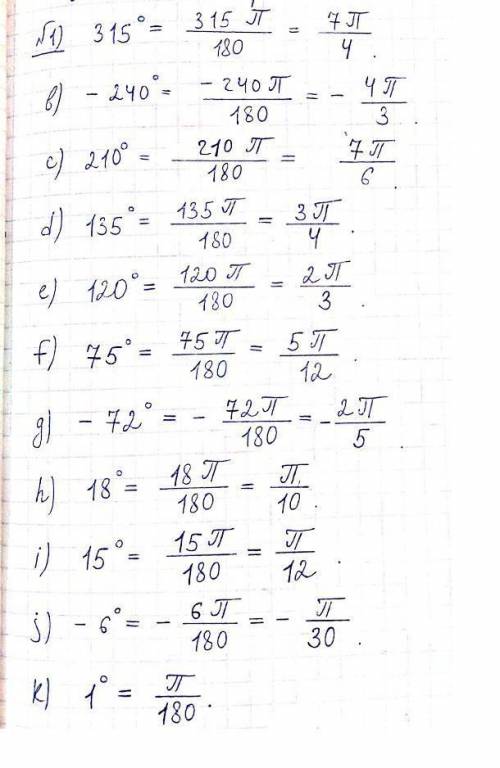 №1) 315° = 315 π / 180 = 7π / 4.
b) - 240° = - 240 π / 180 = - 4π / 3.
c) 210° = - 210 π / 180 = 7π / 6.
d) 135° = 135 π / 180 = 3π / 4.
e) 120° = 120 π / 180 = 2π / 3.
f) 75° = 75 π / 180 = 5π / 12.
g) - 72° = - 72π / 180 = - 2π / 5.
h) 18° = 18 π / 180 = π / 10.
i) 15° = 15 π / 180 = π / 12.
j) - 6° = - 6π / 180 = - π / 30.
k) 1° = π / 180.